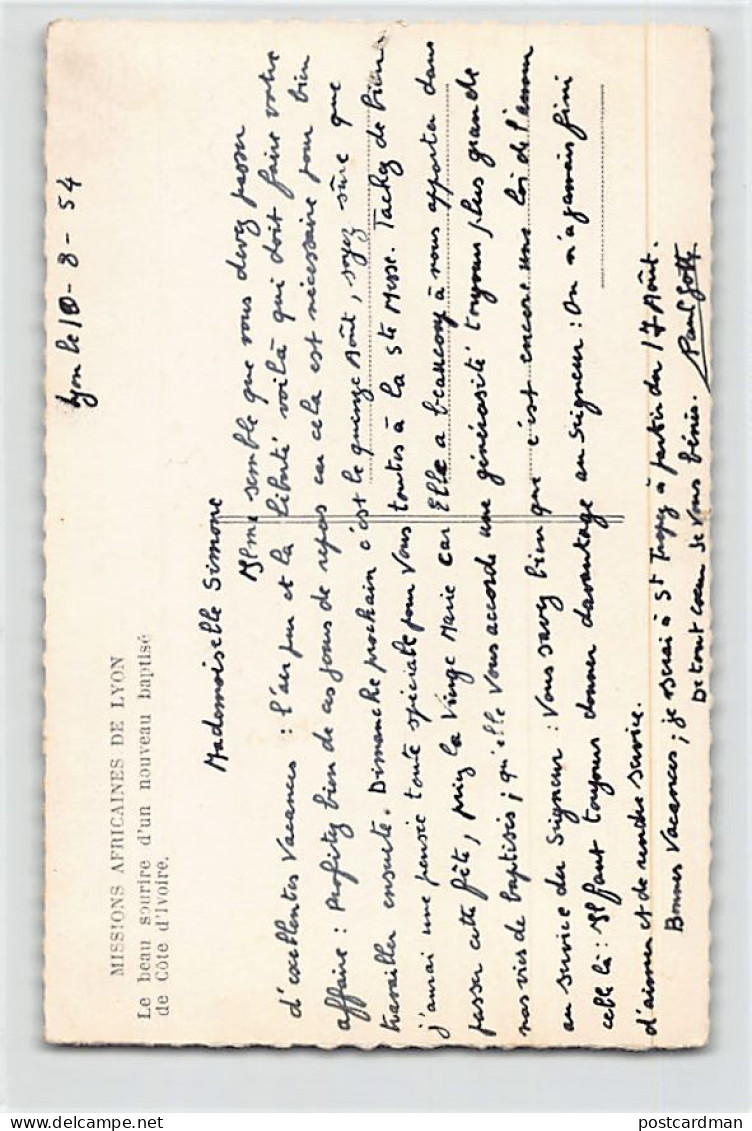 MISSIONS AFRICAINES DE LYON
Le beau sourire d'un nouveau baptisé
de Côte d'Ivoire.
Lyon le 10-8-54
Mademoiselle Simone
Il me semble que vous devez passer
d'excellentes vacances : l'air pur et la liberté voilà qui doit faire votre
affaire : Profitez bien de ces jours de repos car cela est nécessaire pour bien
travailler ensuite. Dimanche prochain c'est le quinze Août, soyez sûre que
j'aurai une pensée toute spéciale pour vous toutes à la Ste Messe. Tachez de bien
passer cette fête, priez la Vierge Marie car Elle a beaucoup à nous apporter dans
nos vies de baptisés ; qu'elle vous accorde une générosité toujours plus grande
au service du Seigneur : Vous savez bien que c'est encore une loi de l'amour
celle là : Il faut toujours donner davantage au Seigneur : On n'a jamais fini
d'aimer et de rendre service.
Bonnes vacances ; je serai à St Tropez à partir du 17 Août.
De tout coeur je vous bénis.
Paul
postcardman